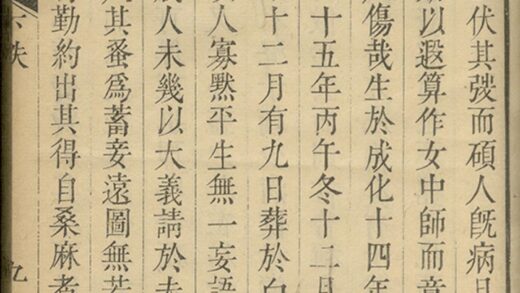 伏其弢而碩人旣病
以遐算作女中師而
傷哉生於成化十四年
十五年丙午冬十二
十二月有九日葬於白
人寡黙平生無一妄語
人未幾以大義請於
其蚤爲蓄妾遠圖無若
勤約出其得自桑麻者
九